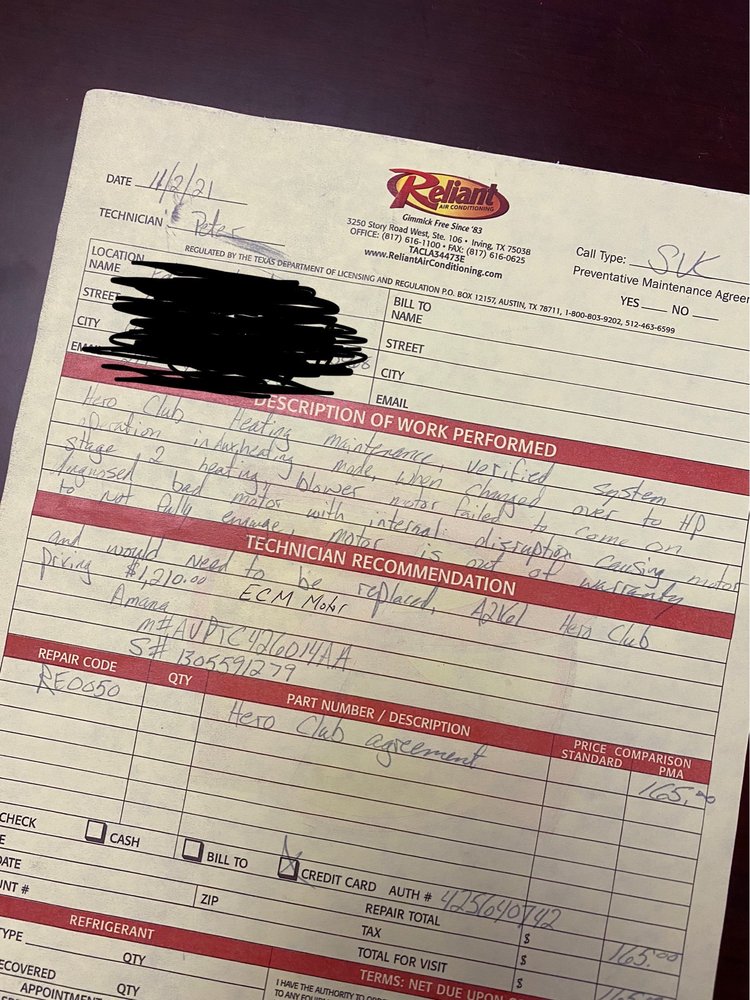 DATE 11/2/21
TECHNICIAN Peter
Reliant
AIR CONDITIONING
Gimmick Free Since '83
3250 Story Road West, Ste. 106 • Irving, TX 75038
OFFICE: (817) 616-1100 • FAX: (817) 616-0625
TACLA34473E
www.ReliantAirConditioning.com
Call Type: SVC
Preventative Maintenance Agree
YES NO
REGULATED BY THE TEXAS DEPARTMENT OF LICENSING AND REGULATION P.O. BOX 12157, AUSTIN, TX 78711, 1-800-803-9202, 512-463-6599
LOCATION
NAME
STREET
CITY
EMAIL
BILL TO
NAME
STREET
CITY
EMAIL
DESCRIPTION OF WORK PERFORMED
Hero Club Heating maintenance, verified system
operation in Aux heating mode, when changed over to HP
stage 2 heating, blower motor failed to come on
diagnosed bad motor with internal disruption causing motor
to not fully engage, motor is out of warranty
TECHNICIAN RECOMMENDATION
and would need to be replaced, A2K61 Hero Club
Pricing $1,210.00 ECM Motor
Amana
m# AVPTC426014AA
S# 1305591279
REPAIR CODE QTY PART NUMBER / DESCRIPTION PRICE COMPARISON
STANDARD PMA
RE0650 Hero Club agreement 165.00
CHECK CASH BILL TO CREDIT CARD AUTH # 425640742
DATE
ZIP
REPAIR TOTAL $ 165.00
TAX $
TOTAL FOR VISIT $ 165.00
REFRIGERANT
TYPE QTY
RECOVERED QTY
APPOINTMENT
TERMS: NET DUE UPON
I HAVE THE AUTHORITY TO